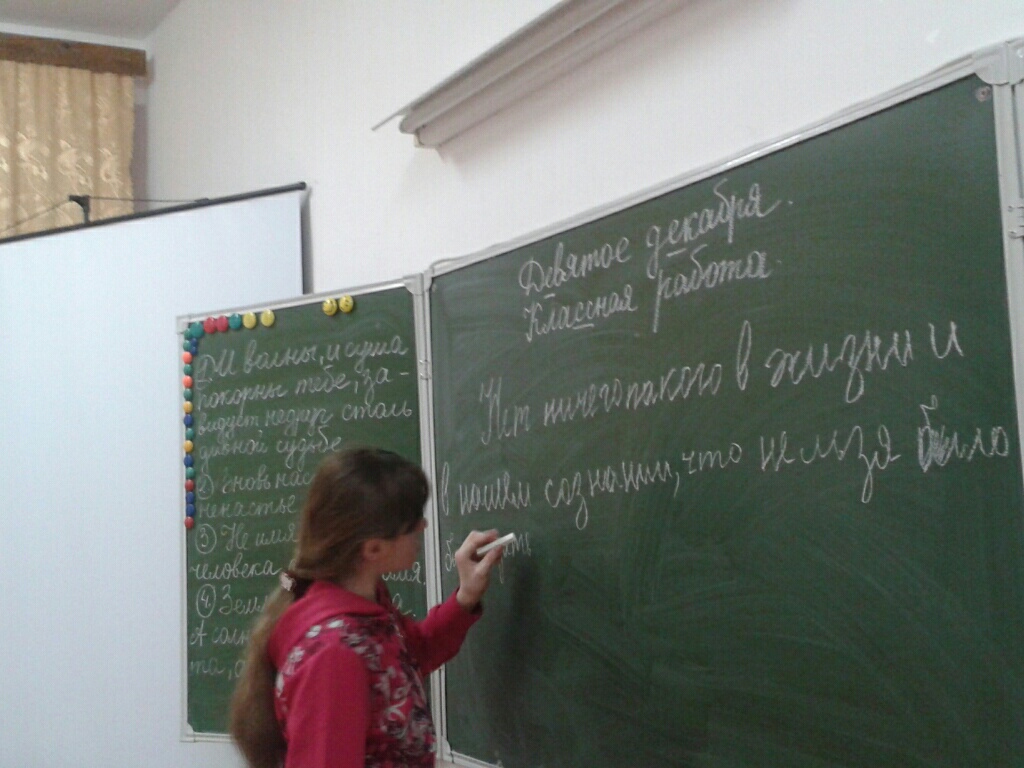 1) И волны, и суша
покорны тебе, за-
видует недруг столь
дивной судьбе
2) Вновь нас
ненастье
3) Не имя
человека имя.
4) Земл
А солн
та,
Девятое декабря.
Классная работа.
Нет ничего такого в жизни и
в нашем сознании, что нельзя было